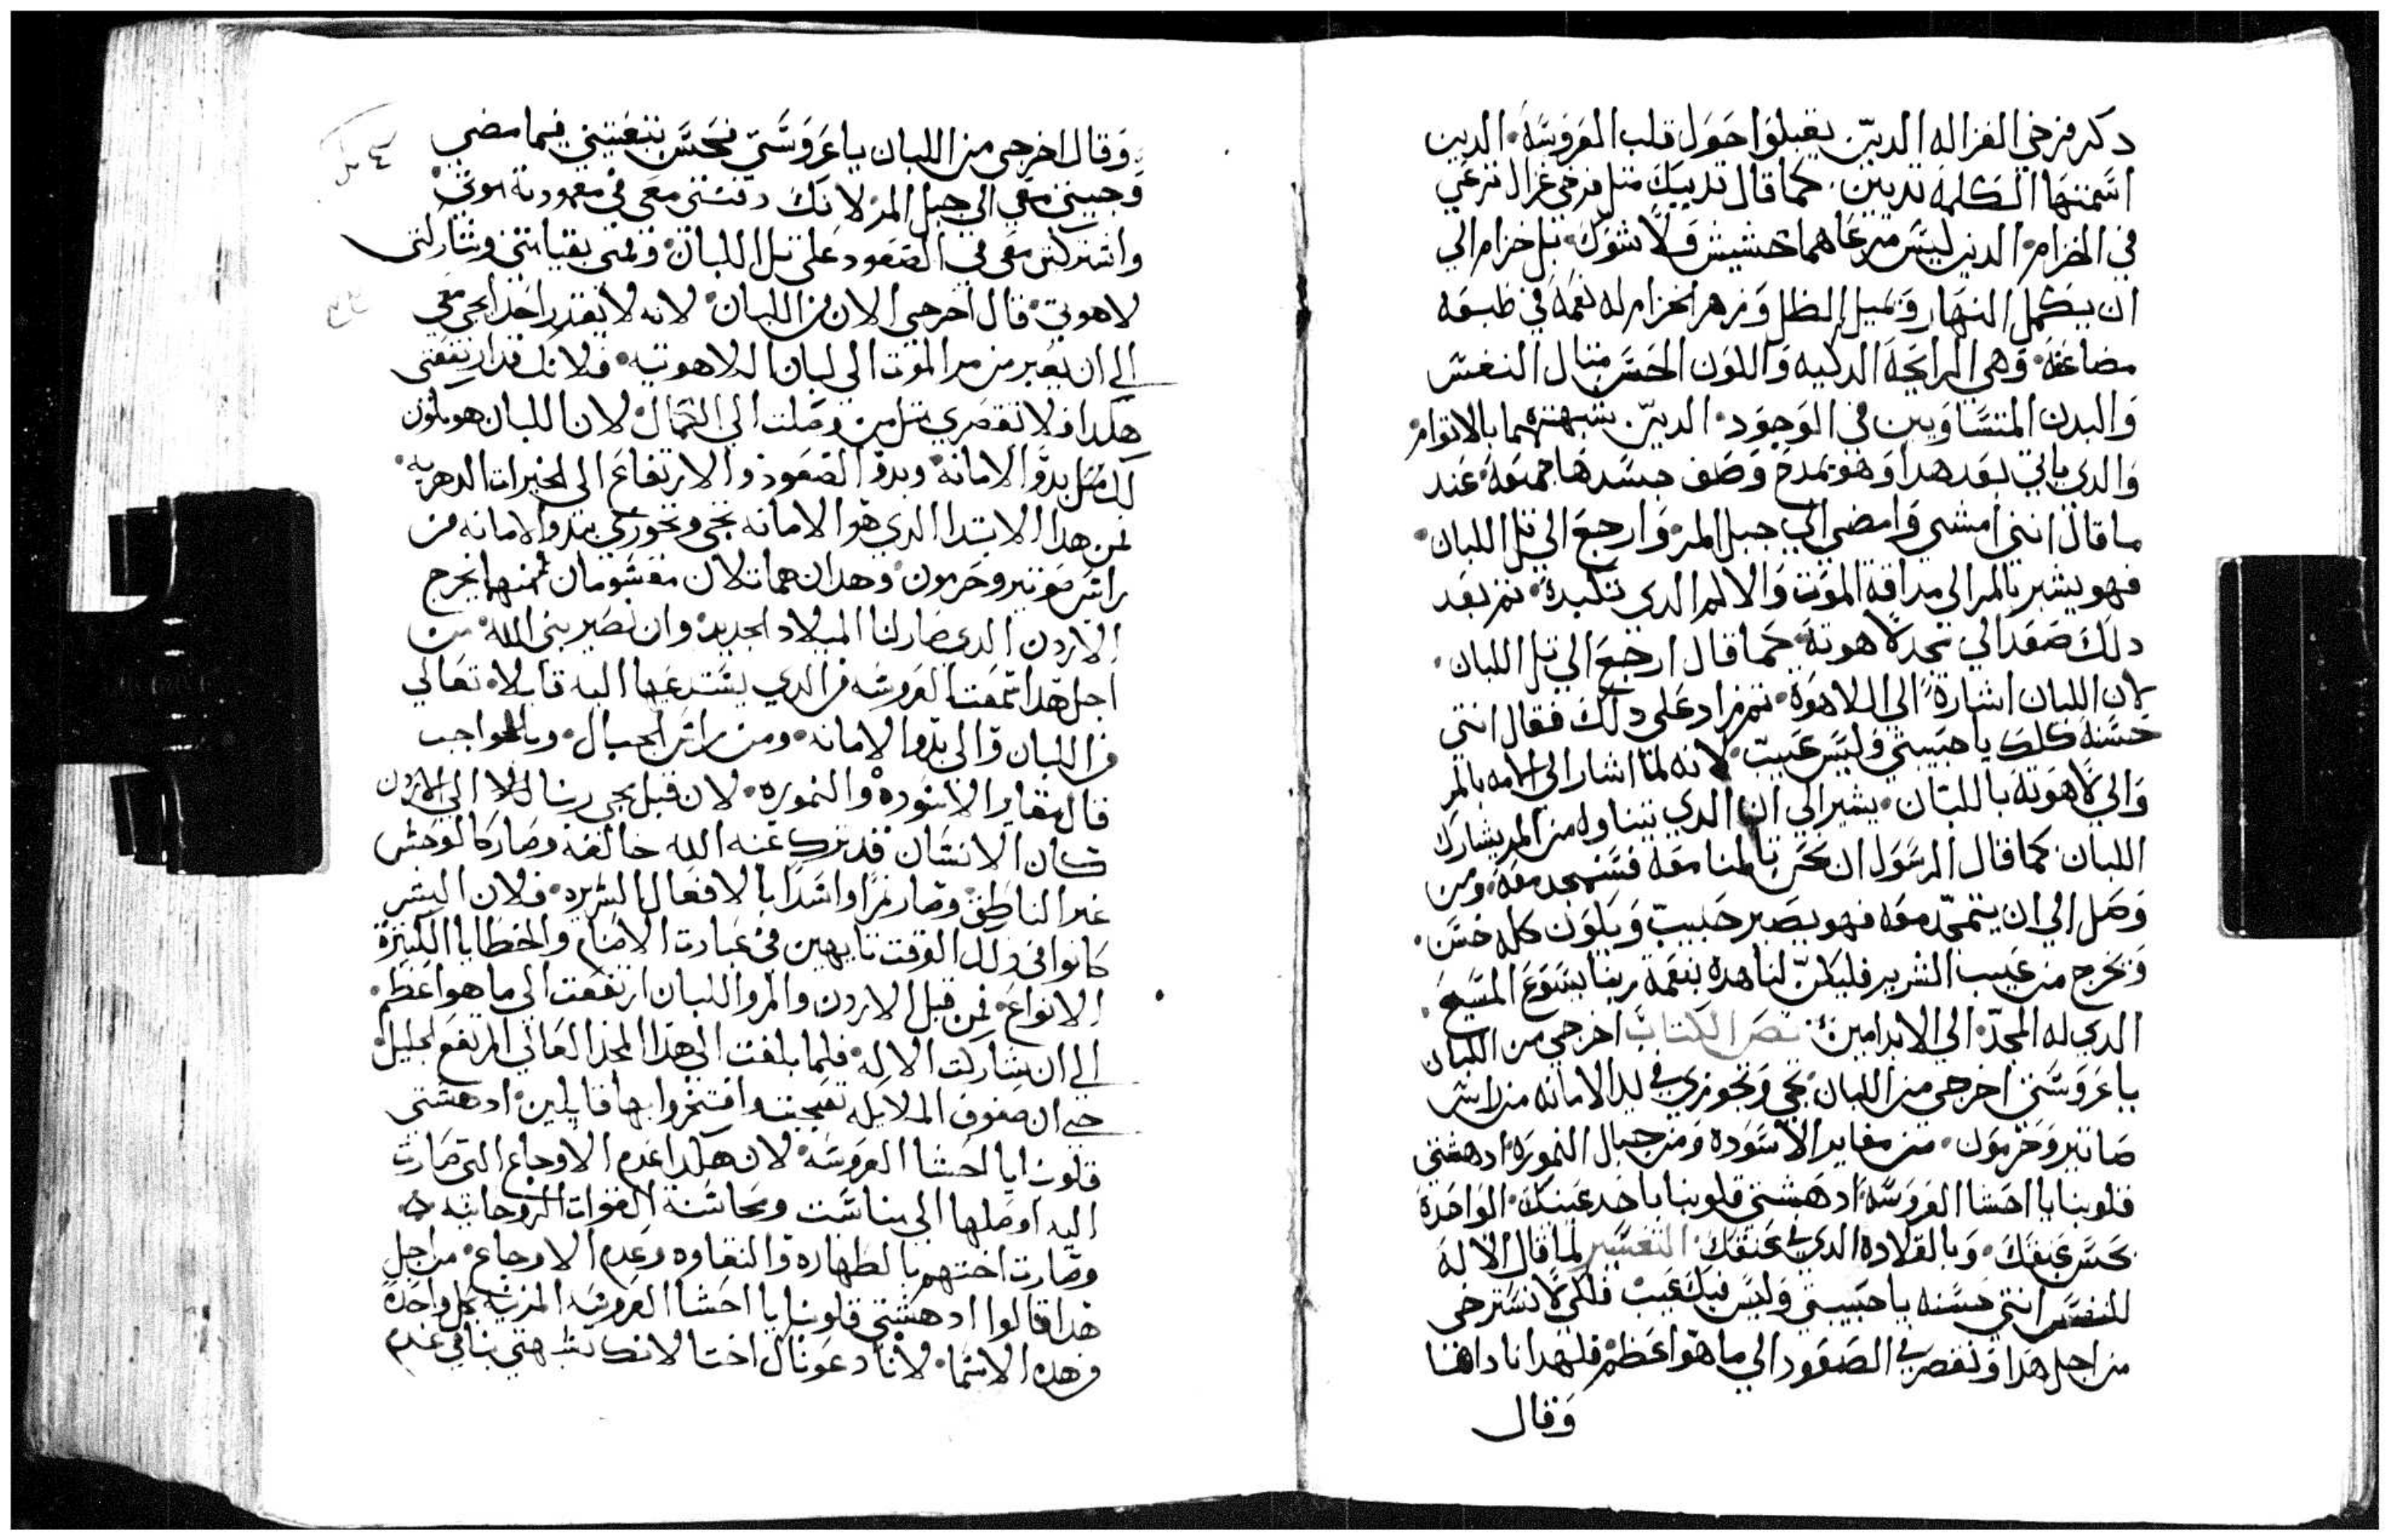 دكر فرخي الغزاله الدين يقبلوا حول قلب العروسه. الدين
اسمتها الكلمه تديين. كما قال تدييك متل فرخي غزال ترعي
في الخزام. الدين ليس مرعاهما حشيش ولا شوك. بل خزام الي
ان يكمل النهار ويميل الظل وزهر الخزام له نعمه في طبعه
مضاعفه. وهي الرايحه الدكيه واللون الحسن متال النفس
والبدن المتساويين في الوجود. الدين شبهتهما بالاتوام
والدي ياتي بعد هدا وهو يمدح وصف جسدها جميعه. عند
ما قال انني امشي وامضي الي جبل المر وارجع الي تل اللبان.
فهو يشير بالمر الي مداقة الموت والالم الدي تكبده. تم بعد
دلك صعد الي مجد لاهوته كما قال ارجع الي تل اللبان.
لان اللبان اشارة الي اللاهوه. تم زاد علي دلك فقال انتي
حسنه كلك يا حبيبتي وليس عيب. لانه لما اشار الي الامه بالمر
والي لاهوته باللبان. يشير الي ان الدي يتناوله من المر يشارك
اللبان. كما قال الرسول ان نحن تالمنا معه فسنمجد معه. ومن
وصل الي ان يتمجد معه فهو يصير حبيب ويكون كله حسن.
ويخرج من عيب الشرير فليكن لنا هده بنعمة ربنا يسوع المسيح.
الدي له المجد. الي الابد امين. نص الكتاب اخرجي من اللبان
يا عروستي اخرجي من اللبان. تجي وتجوزي في بدا الامانه من راس
صانير وحرمون. من مغاير الاسوده ومن جبال النموره. ادهشتي
قلوبنا يا اختنا العروسه. ادهشتي قلوبنا باحد عينيك. الواحده
بحسن عنقك. وبالقلاده الدي في عنقك. التفسير لما قال الاله
للنفس انتي حسنه يا حبيبتي وليس فيك عيب فلكي لا تسترخي
من اجل هدا وتقصر في الصعود الي ما هو اعظم. فلهدا ناداها
وقال
وقال اخرجي من اللبان يا عروستي فحسن تبعتيني فيما مضي
وجيتي معي الي جبل المر لانك دفنتي معي في معموديه موتي.
واشتركتي معي في الصعود علي تل اللبان. وقمتي بقيامتي وشاركتي
لاهوتي. قال اخرجي الان من اللبان. لانه لا يقدر احدا يجي معي
الي ان يعبر من مر الموت الي لبان اللاهوتيه. فلانك قد ارتفعتي
هكدا فلا تقصري متل من وصلت الي الكمال. لان اللبان هو يكون
لك متل بدو الامانه. وبدو الصعود والارتفاع الي الخيرات الدهريه.
فمن هدا الابتدا الدي هو الامانه تجي وتجوزي بدو الامانه من
راس صونير وحرمون. وهدان هما تلان مقسومان فمنهما يخرج
الاردن الدي صار لنا الميلاد الجديد. وان نصير بني الله. من
اجل هدا سمعت العروسه من الدي يستدعيها اليه قايلا. تعالي
من اللبان والي بدو الامانه. ومن راس الجبال. وبالواجب
قال مغاير الاسوده والنموره. لان قبل مجي ربنا الاله الي الاردن
كان الانسان قد ترك عنه الله خالقه وصار كالوحش
غير الناطق. وصار نمرا واسدا بالافعال الشريره. فلان البشر
كانوا في دلك الوقت تايهين في عبادت الاصنام والخطايا الكتيرة
الانواع. فمن قبل الاردن والمر واللبان ارتفعت الي ما هو اعظم.
الي ان شاركت الاله. فلما بلغت الي هدا المجد العالي المرتفع الجليل.
حتي ان صفوف الملايكه تعجبت وافتخروا بها قايلين. ادهشتي
قلوبنا يا اختنا العروسه. لان هكدا عدم الاوجاع التي صارت
اليه اوصلها الي مناسبت ومجانسة القوات الروحانيه.
وصارت اختهم بالطهاره والنقاوه وعدم الاوجاع. من اجل
هدا قالوا ادهشتي قلوبنا يا اختنا العروسه المزينه بكل واحدة
من هده الاسما. لانا دعوناك اختا لانك تشبهتي بنا في عدم